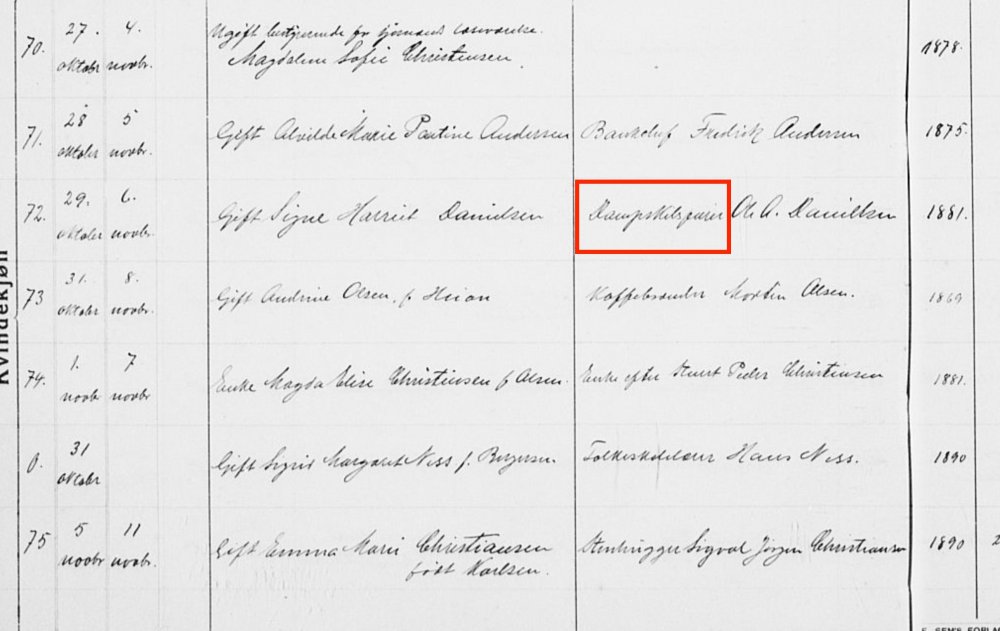 70. 27. 4. Ugift bestyrende for sømands læseværelse. 1878.
oktober novbr. Magdalene Sofie Christensen
71. 28 5 Gift Alvilde Marie Pauline Andersen Bankchef Fredrik Andersen 1875.
oktober novbr.
72. 29. 6. Gift Signe Harriet Danielsen Ole A. Danielsen 1881.
oktober novbr.
73 31. 8. Gift Andrine Olsen, f. Kaffebrænder Morten Olsen. 1869
oktober novbr.
74. 1. 7 Enke Magda Elise Christiansen f. Olsen. Enke efter Stuert Peder Christiansen 1881.
novbr novbr
0. 31 Gift Sigrid Margaret Ness f. Bergersen. Folkeskolelærer Hans Ness. 1890
oktober
75 5 11 Gift Emma Marie Christiansen Stenhugger Sigval Jørgen Christiansen 1890 2
novbr novbr. født Karlsen.
Kvindekjøn
E. SEM'S FORLAG